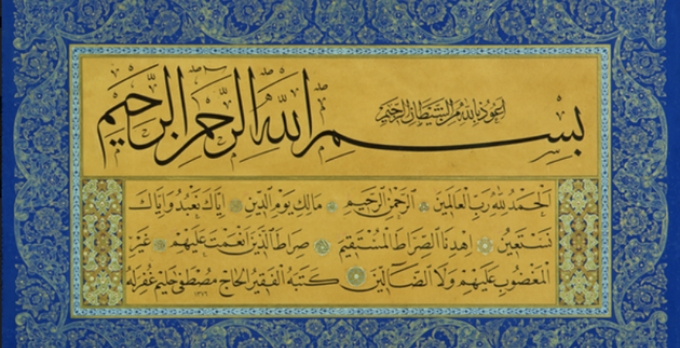 اعوذ بالله من الشيطان الرجيم
بِسْمِ اللهِ الرَّحْمٰنِ الرَّحِيمِ
اَلْحَمْدُ لِلّٰهِ رَبِّ الْعَالَمِينَ الرَّحْمٰنِ الرَّحِيمِ مَالِكِ يَوْمِ الدِّينِ اِيَّاكَ نَعْبُدُ وَاِيَّاكَ
نَسْتَعِينُ اِهْدِنَا الصِّرَاطَ الْمُسْتَقِيمَ صِرَاطَ الَّذِينَ اَنْعَمْتَ عَلَيْهِمْ غَيْرِ
الْمَغْضُوبِ عَلَيْهِمْ وَلَا الضَّالِّينَ كتبه الفقير الحاج مصطفى حليم غفر له